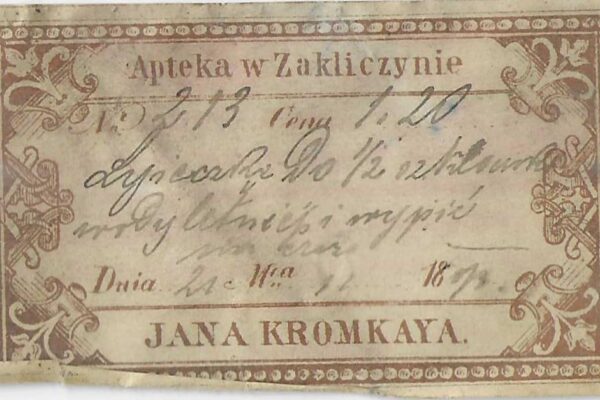 Apteka w Zakliczynie
No 213 Cena 1.20
Łyżeczkę do 1/2 szklanki
wody letniej i wypić
na raz
Dnia 21 Mca 11 18
JANA KROMKAYA.